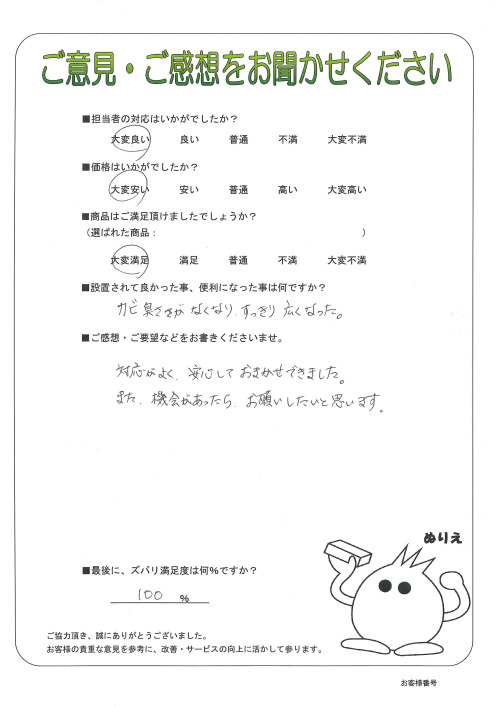 ご意見・ご感想をお聞かせください
■担当者の対応はいかがでしたか？
大変良い　良い　普通　不満　大変不満
■価格はいかがでしたか？
大変安い　安い　普通　高い　大変高い
■商品はご満足頂けましたでしょうか？
（選ばれた商品：　　　　　　　　　　）
大変満足　満足　普通　不満　大変不満
■設置されて良かった事、便利になった事は何ですか？
カビ臭さがなくなり、すっきり広くなった。
■ご感想・ご要望などをお書きくださいませ。
対応がよく、安心しておまかせできました。
また、機会があったら、お願いしたいと思います。
ぬりえ
■最後に、ズバリ満足度は何％ですか？
100 ％
ご協力頂き、誠にありがとうございました。
お客様の貴重な意見を参考に、改善・サービスの向上に活かして参ります。
お客様番号